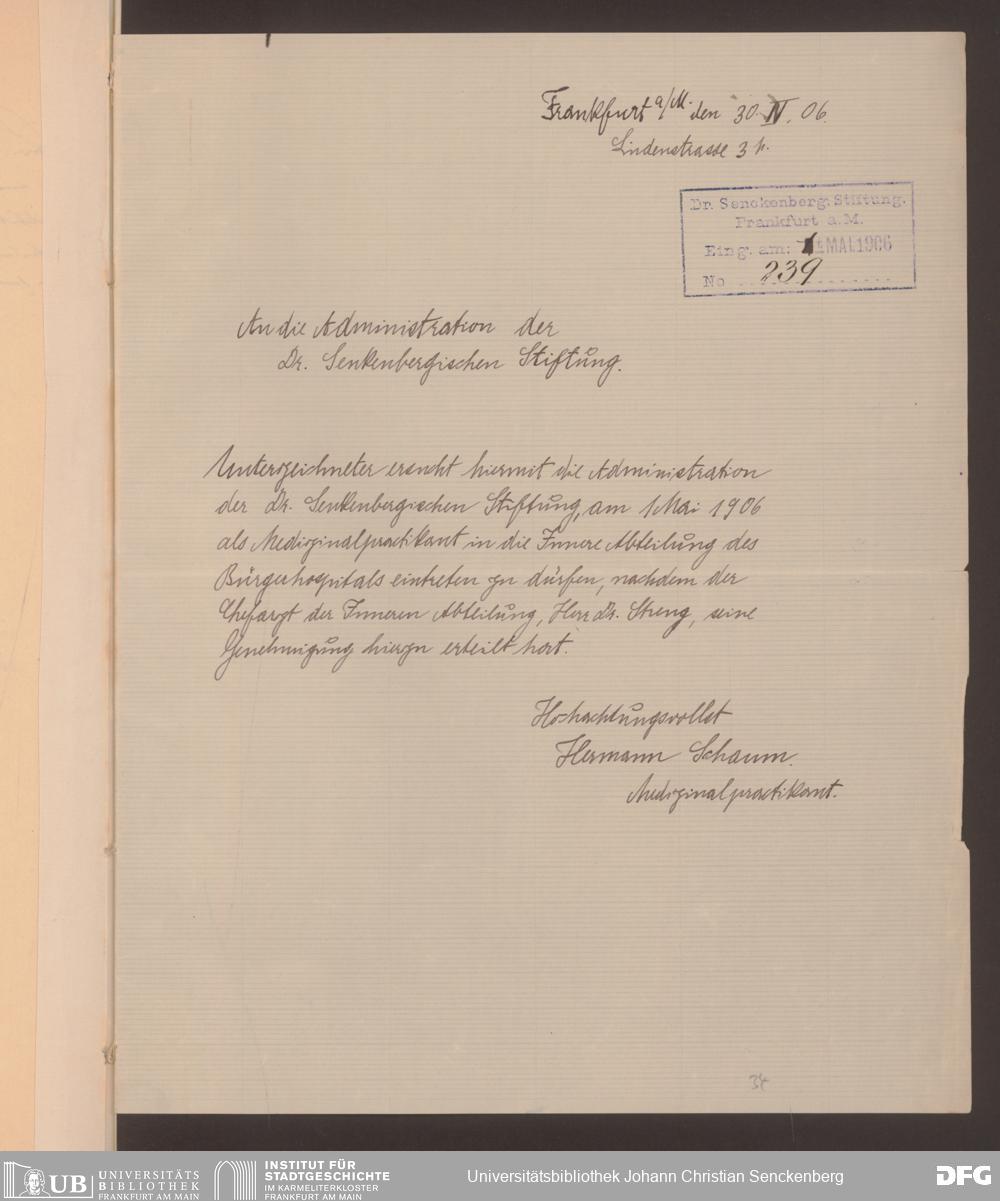 Frankfurt a/M. den 30. IV. 06.
Lindenstrasse 3 p.
Dr. Senckenberg. Stiftung.
Frankfurt a. M.
Eing. am: 1 MAI 1906
No 239
An die Administration der
Dr. Senkenbergischen Stiftung.
Unterzeichneter ersucht hiermit die Administration
der Dr. Senkenbergischen Stiftung, am 1 Mai 1906
als Medizinalpractikant in die Innere Abteilung des
Bürgerhospitals eintreten zu dürfen, nachdem der
Chefarzt der Inneren Abteilung, Herr Dr. Streng, seine
Genehmigung hierzu erteilt hat.
Hochachtungsvollst
Hermann Schaum.
Medizinalpractikant.
34
UB UNIVERSITÄTS
BIBLIOTHEK
FRANKFURT AM MAIN
INSTITUT FÜR
STADTGESCHICHTE
IM KARMELITERKLOSTER
FRANKFURT AM MAIN
Universitätsbibliothek Johann Christian Senckenberg
DFG